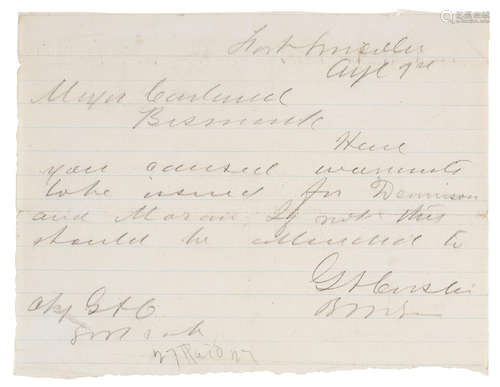 Fort Lincoln
Augt 1st
Major Carland
Bismarck
Have
you caused warrants
to be issued for Dennison
and Moran If not this
should be attended to
G A Custer
G A C